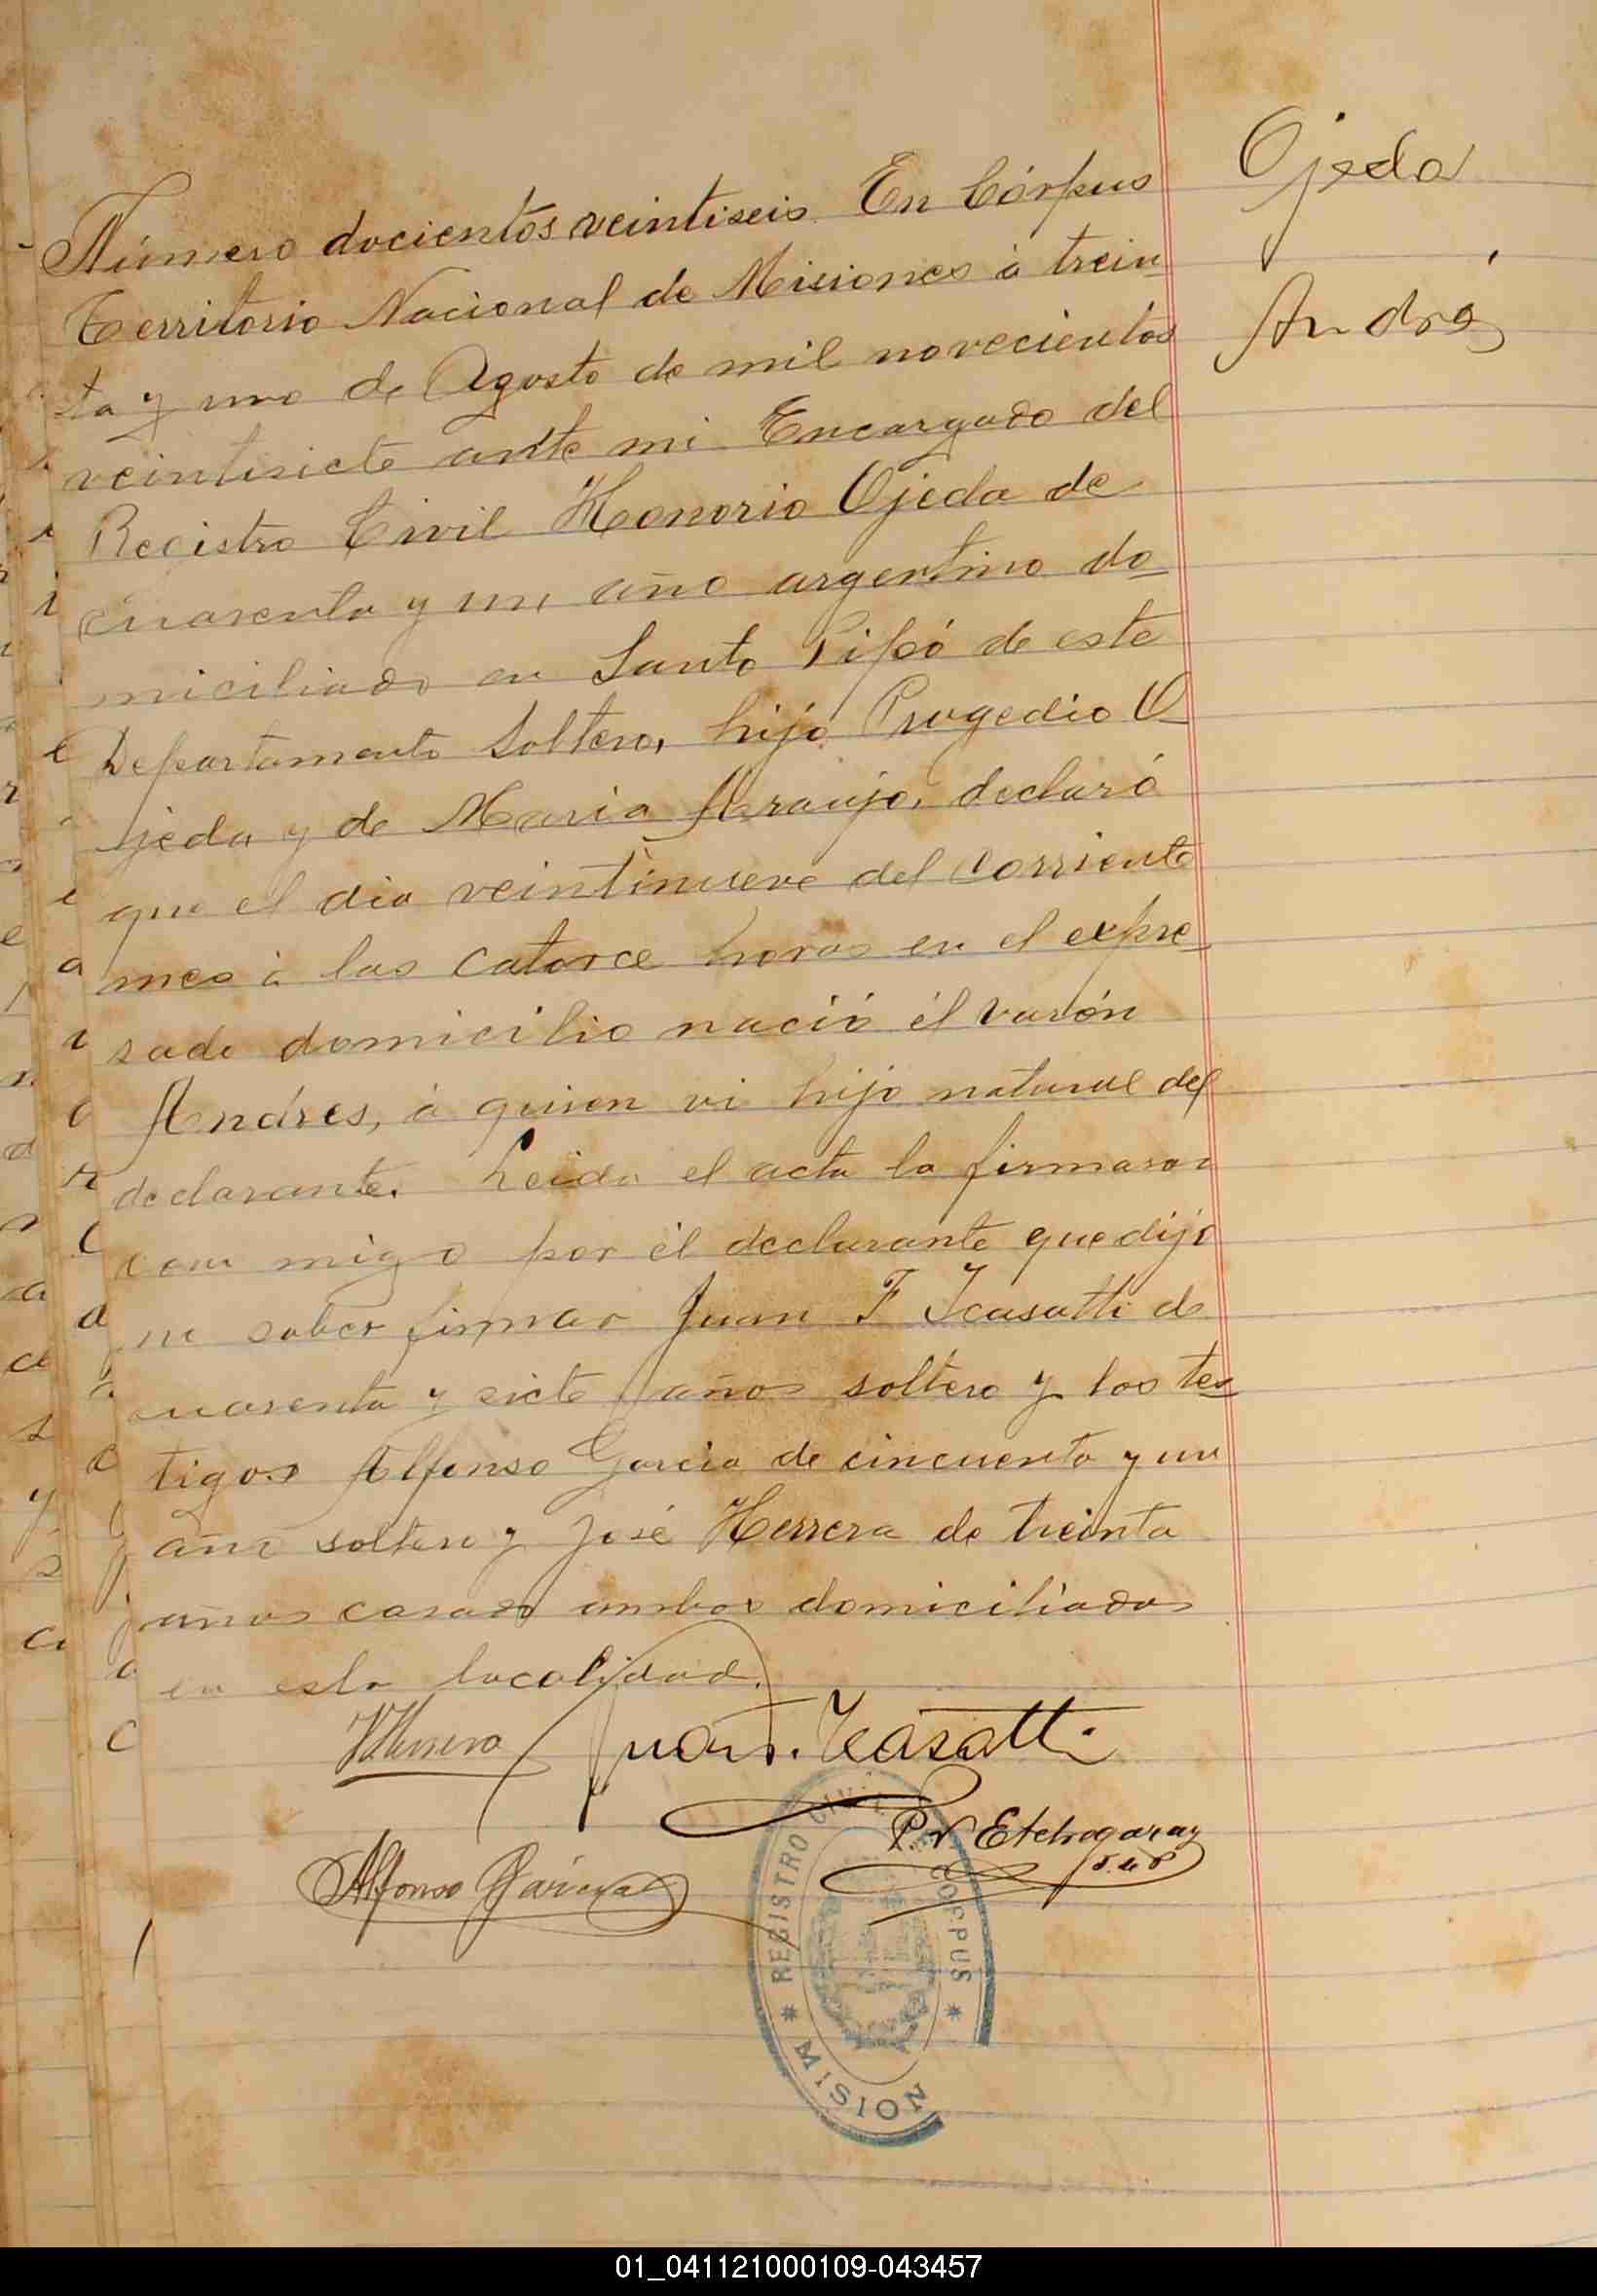 Ojeda
Andrés
Número docientos veintiseis. En Córpus
Territorio Nacional de Misiones á trein
ta y uno de Agosto de mil novecientos
veintisiete ante mi Encargado del
Registro Civil Honorio Ojeda de
cuarenta y un año argentino do-
miciliado en Santo Pipó de este
Departamento Soltero, hijo Progedio O-
jeda y de Maria Araujo, declaró
que el dia veintinueve del corriente
mes á las catorce horas en el expre-
sado domicilio nació él varón
Andrés, á quien vi hijo natural del
declarante. Leida el acta la firmaron
con migo por él declarante que dijo
no saber firmar Juan F Icasatti de
cuarenta y siete años soltero y los tes-
tigos Alfonso Garcia de cincuenta y un
año soltero y José Herrera de treinta
años casado ambos domiciliados
en esta localidad.
Juan F. Icasatti
P. N Etchegaray
Alfonso Garcia
REGISTRO CIVIL CORPUS
MISION
01_041121000109-043457